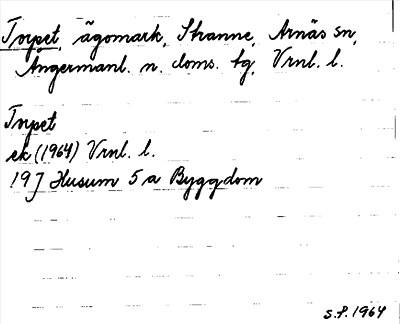 Torpet, ägomark, Stranne, Arnäs sn,
Ångermanl. n. doms. tg, Vrnl. l.
Torpet
ek (1964) Vrnl. l.
19J Husum 5 a Byggdom
S.P. 1964